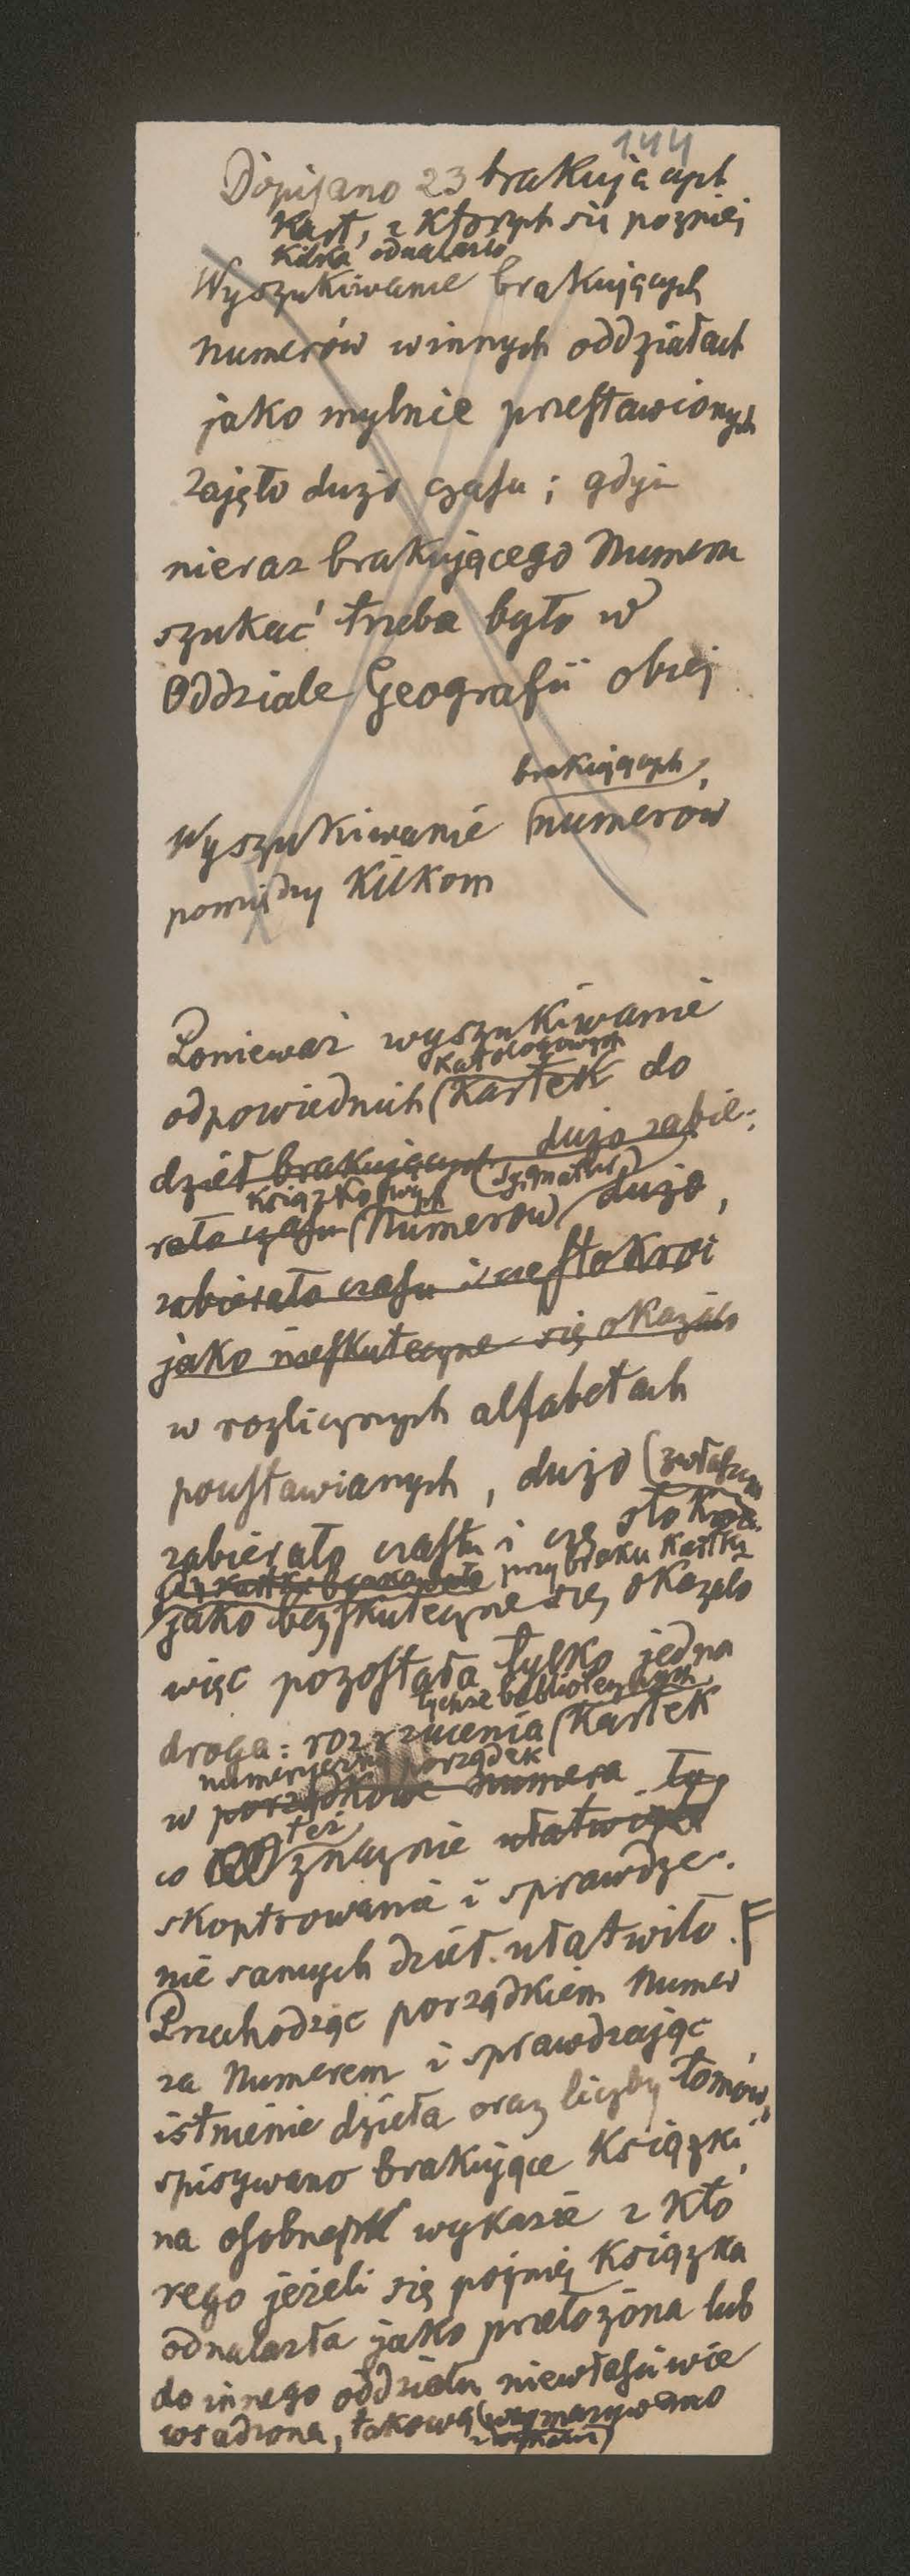 144
Dopisano 23 brakujących
Kart, z Ktorych się pozniej
Kilka odnalazło
Wyszukiwanie brakujących
numerów w innych oddziałach
jako mylnie przestawionych
zajęło dużo czasu ; gdyż
nieraz brakującego Numeru
szukać trzeba było w
Oddziale Geografii obcej
brakujących
Wyszukiwanie numerów
pomiędzy Kilkom
Ponieważ wyszukiwanie
Katalogowych
odpowiednich (Kartek do
dzieł brakujących dużo zabie-
książkowych (Sygnatur)
rało czasu (Numerów) dużo,
zabierało czasu i częstokroć
jako nieskuteczne się okazało
w rozlicznych alfabetach
poustawianych, dużo (zwłaszcza
zabierało czasu i czę stokroć
przy braku Kartki
jako bezskuteczne się okazało
więc pozostała tylko jedna
tychże bibliotecznych
droga: rozrzucenia (Kartek
numeryczny porządek
w porządkowe numera to,
też
co znacznie ułatwiło
skontrowanie i sprawdze-
nie samych dzieł. ułatwiło.
Przechodząc porządkiem Numer
za Numerem i sprawdzając
istnienie dzieła oraz liczby tomów,
spisywano brakujące Książki
na osobnym wykazie z Któ
rego jeżeli się poźniej Książka
odnalazła jako przełożona lub
do innego oddziału niewłaściwie
wsadzona, takową (wymazywano